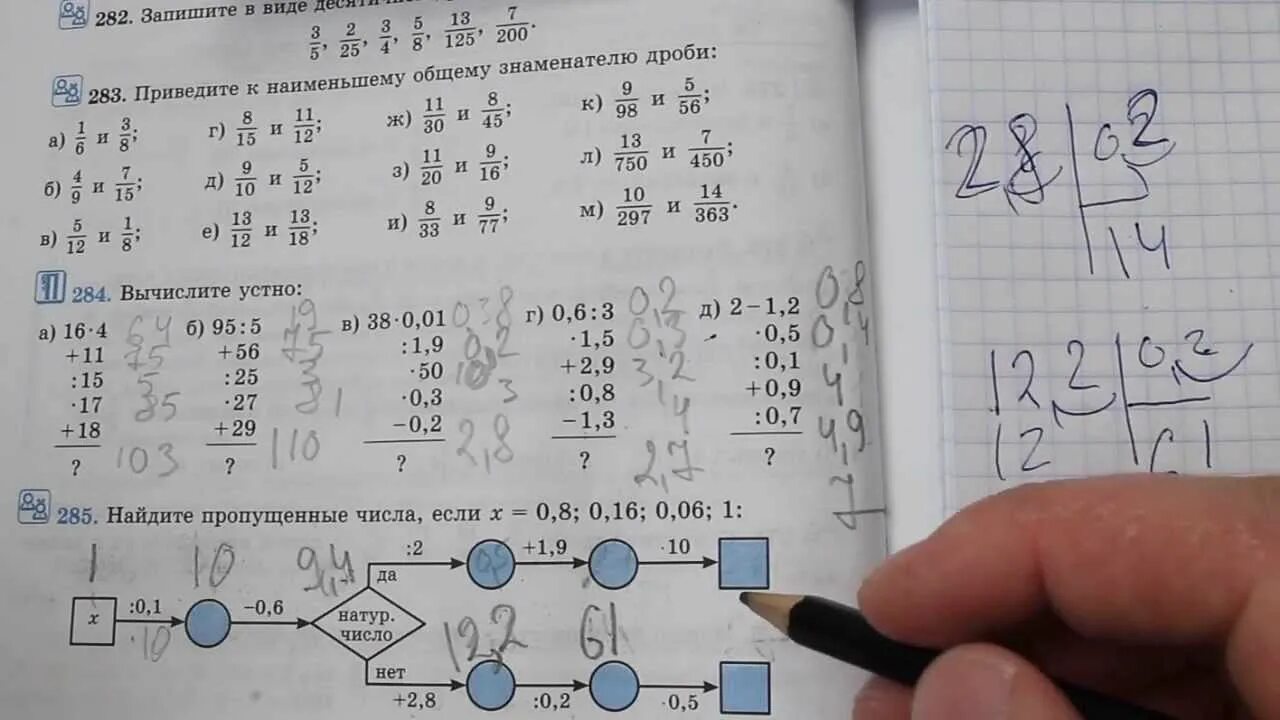 282. Запишите в виде
3/5, 2/25, 3/4, 5/8, 13/125, 7/200.
283. Приведите к наименьшему общему знаменателю дроби:
а) 1/6 и 3/8; г) 8/15 и 11/12; ж) 11/30 и 8/45; к) 9/98 и 5/56;
б) 4/9 и 7/15; д) 9/10 и 5/12; з) 11/20 и 9/16; л) 13/750 и 7/450;
в) 5/12 и 1/8; е) 13/12 и 13/18; и) 8/33 и 9/77; м) 10/297 и 14/363.
П 284. Вычислите устно:
а) 16·4 64 б) 95:5 19 в) 38·0,01 038 г) 0,6:3 0,2 д) 2−1,2 0,8
+11 75 +56 75 :1,9 0,2 ·1,5 0,3 ·0,5 0,4
:15 5 :25 3 ·50 10 +2,9 3,2 :0,1 4
·17 85 ·27 81 ·0,3 3 :0,8 4 +0,9 4,9
+18 103 +29 110 −0,2 2,8 −1,3 2,7 :0,7 7
? ? ? ? ?
285. Найдите пропущенные числа, если x = 0,8; 0,16; 0,06; 1:
1 10 9,4 :2 +1,9 ·10
да
x :0,1 −0,6 натур. число
·10 12,2 61
нет
+2,8 :0,2 ·0,5
2,8 0,2
14
12,2 0,2
12 61